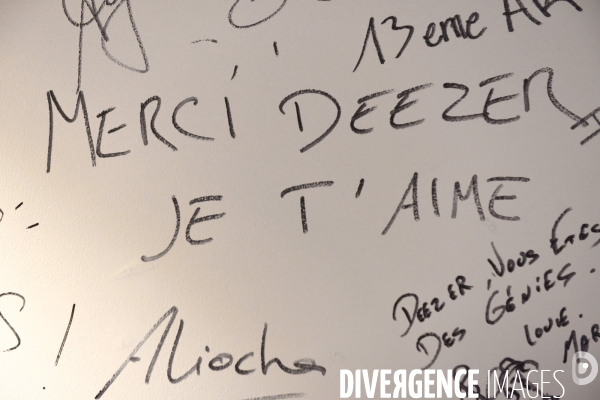 13eme AR
MERCI DEEZER
JE T'AIME
DEEZER VOUS ÊTES
DES GÉNIES.
LOVE.
Aliocha
DIVERGENCE IMAGES